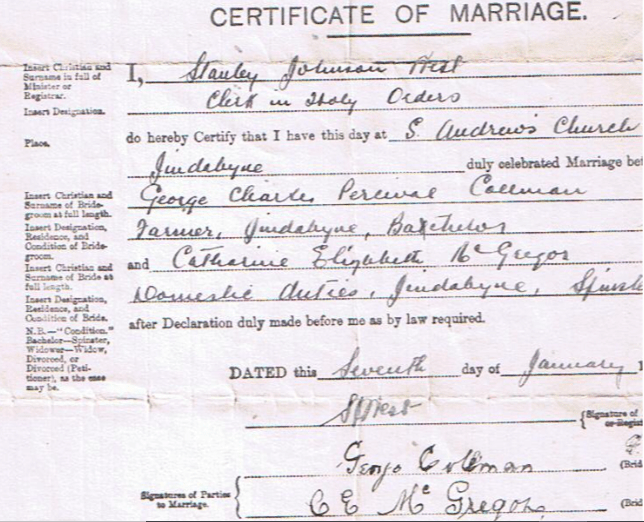 CERTIFICATE OF MARRIAGE.
Insert Christian and
Surname in full of
Minister or
Registrar.
I, Stanley Johnson West
Insert Designation.
Clerk in Holy Orders
Place.
do hereby Certify that I have this day at S. Andrew's Church
Jindabyne duly celebrated Marriage bet
Insert Christian and
Surname of Bride-
groom at full length.
George Charles Percival Coleman
Insert Designation,
Residence, and
Condition of Bride-
groom.
Farmer, Jindabyne, Batchelor
Insert Christian and
Surname of Bride at
full length.
and Catharine Elizabeth McGregor
Insert Designation,
Residence, and
Condition of Bride.
Domestic duties, Jindabyne, Spinst
N.B.—"Condition."
Bachelor—Spinster,
Widower—Widow,
Divorced, or
Divorced (Peti-
tioner), as the case
may be.
after Declaration duly made before me as by law required.
DATED this Seventh day of January 1
SJWest
{Signature of
or Regist
George Coleman
(Brid
Signatures of Parties
to Marriage.
C E McGregor
(Brid